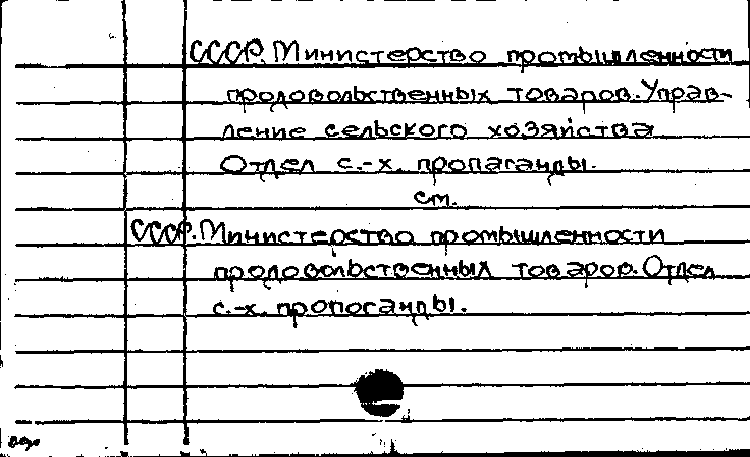 СССР. Министерство промышленности
продовольственных товаров. Управ-
ление сельского хозяйства
Отдел с.-х. пропаганды.
см.
СССР. Министерство промышленности
продовольственных товаров. Отдел
с.-х. пропоганды.